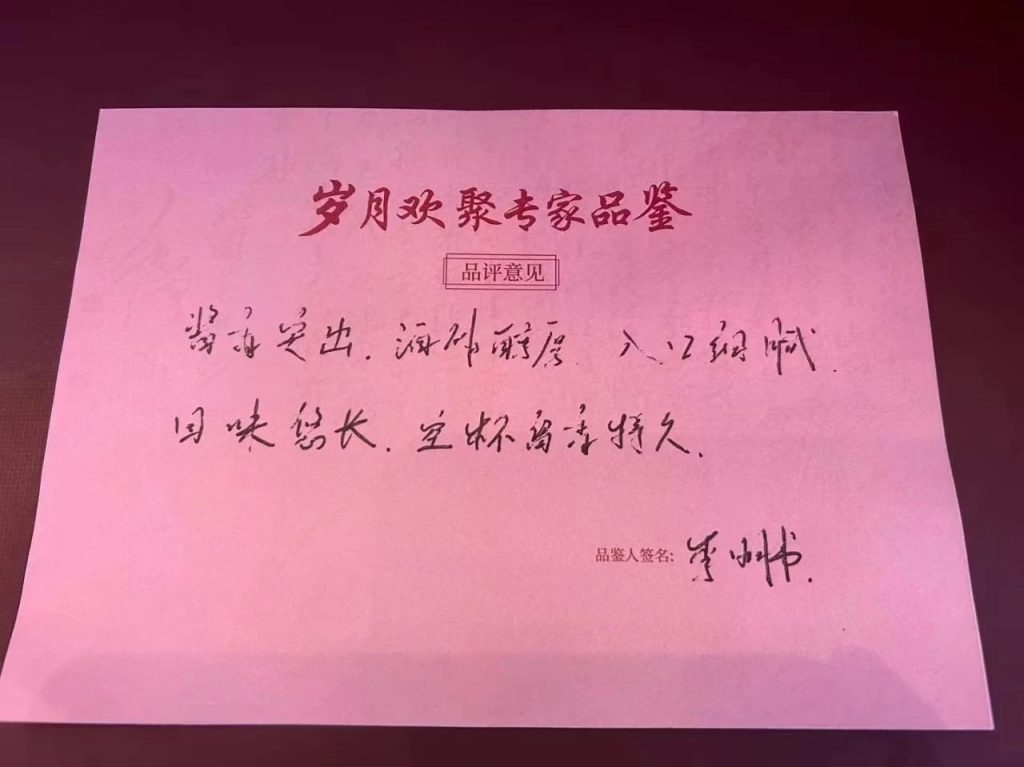 岁月欢聚专家品鉴
品评意见
酱香突出，酒体醇厚，入口细腻，
回味悠长，空杯留香持久。
品鉴人签名：李